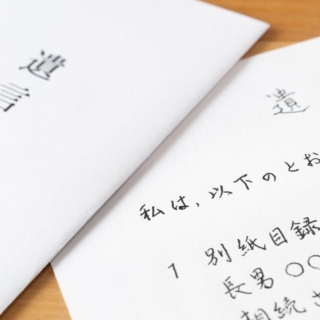 遺言
遺
私は、以下のとお
1 別紙目録
長男〇〇
相続さ